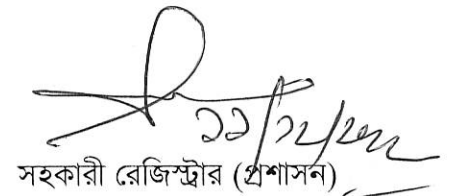 ১১/১২/২০২২
সহকারী রেজিস্ট্রার (প্রশাসন)